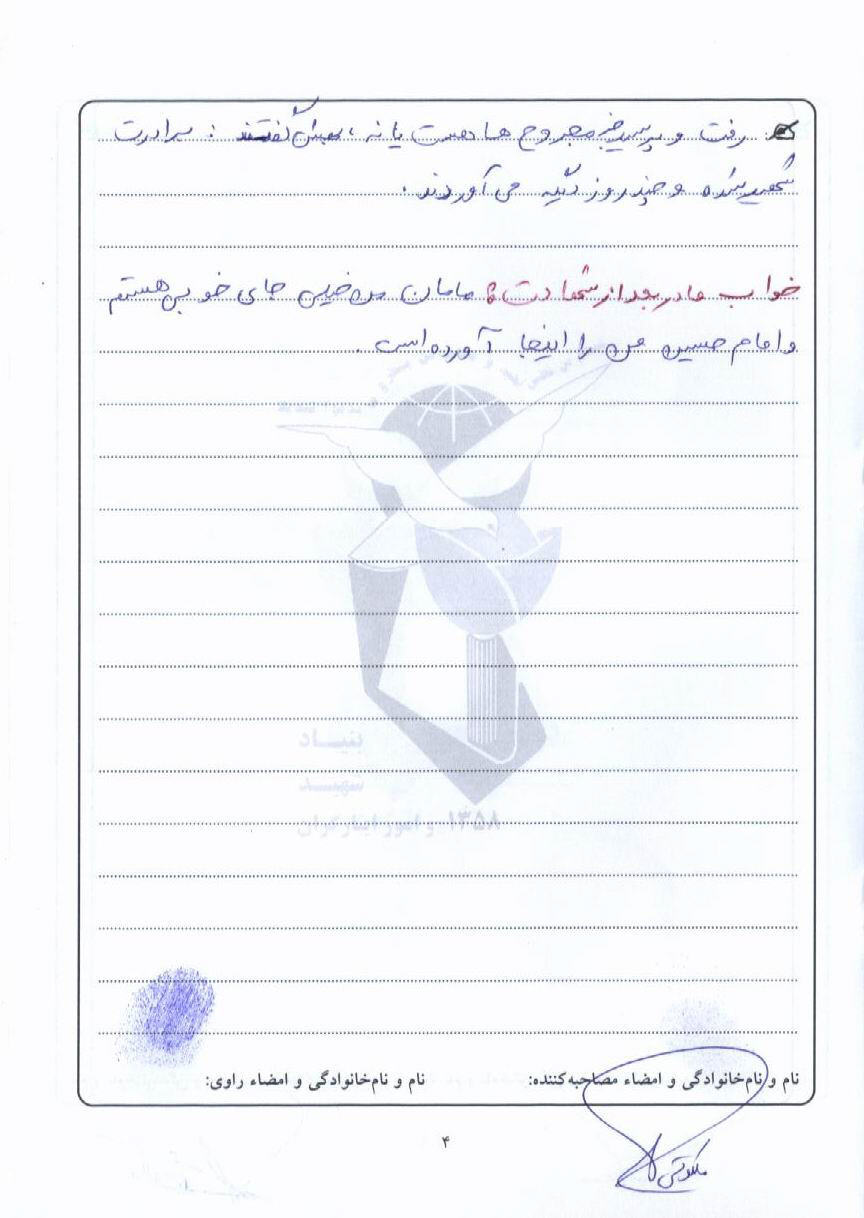 رفت و پرسید جزء مجروح ها هست یا نه، بهش گفتند : برادرت
شهید شده و چند روز دیگه می آورند.
خواب مادر بعد از شهادت: مامان من خیلی جای خوبی هستم
و امام حسین من را اینجا آورده است.
بنیاد
شهید
۱۳۵۸ و امور ایثارگران
نام و نام‌خانوادگی و امضاء مصاحبه‌کننده:
نام و نام‌خانوادگی و امضاء راوی:
۴